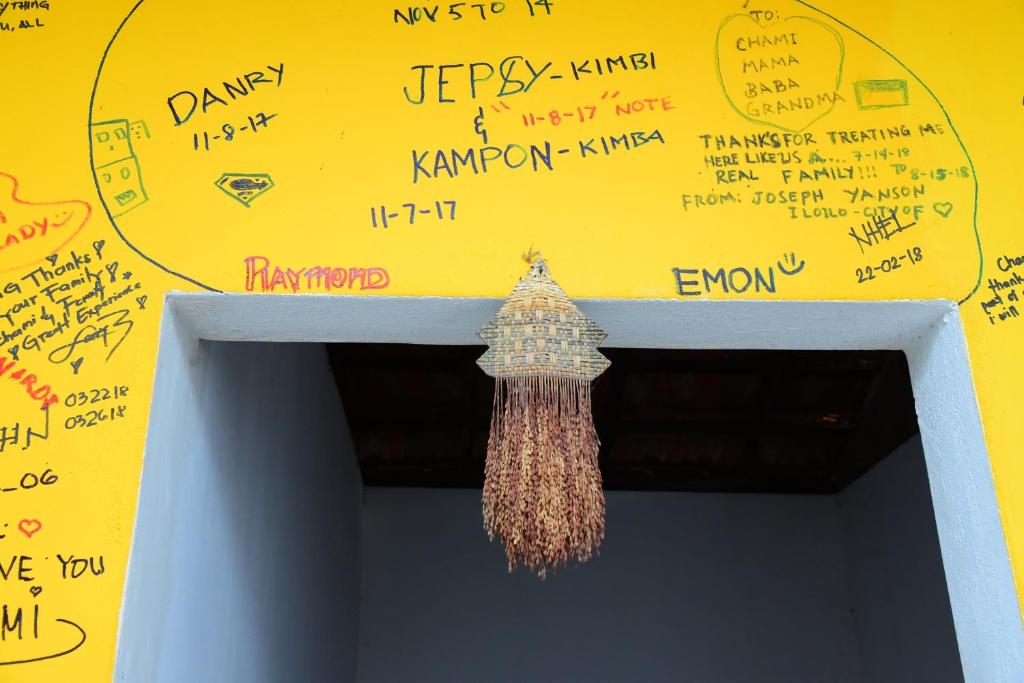 YTHING
U, ALL
NOV 5 TO 14
DANRY
11-8-17
JEPSY-KIMBI
&
"11-8-17" NOTE
KAMPON-KIMBA
11-7-17
TO:
CHAMI
MAMA
BABA
GRANDMA
THANKS FOR TREATING ME
HERE LIKE US A.... 7-14-18
REAL FAMILY!!! TO 8-15-18
FROM: JOSEPH YANSON
ILOILO-CITY OF ♡
NHEL
22-02-18
RAYMOND
EMON
LADY
NG Thanks
your Family
Chami & Family
Great Experience
NARDS
032218
032618
HN
-06
VE YOU
MI
Cha
thank
part of
i will